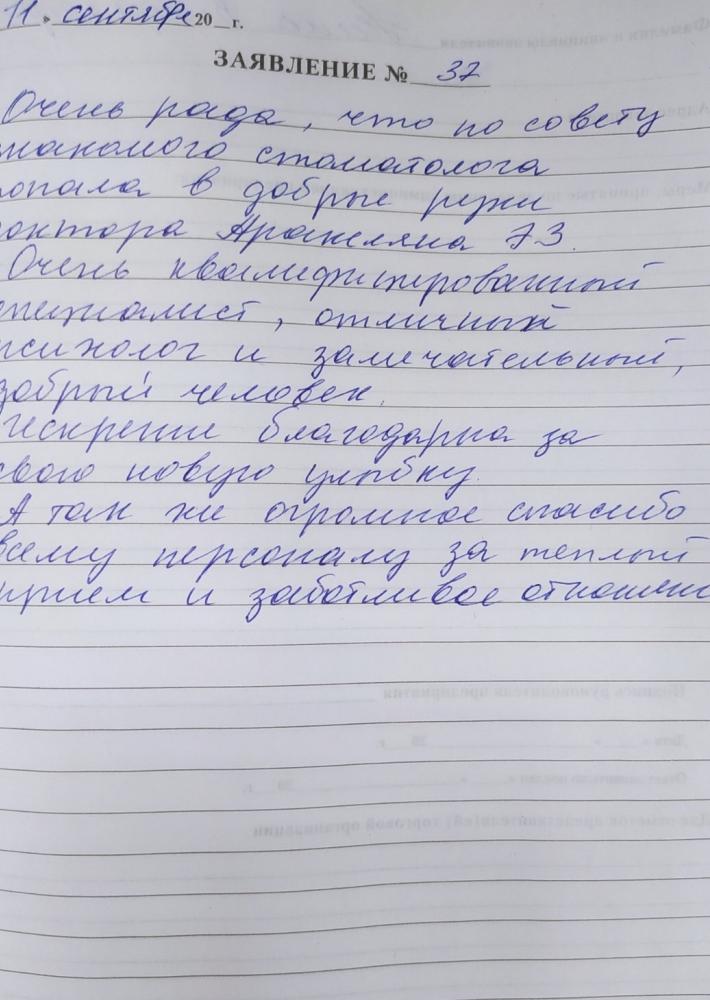 11 » сентября 20__г.
ЗАЯВЛЕНИЕ № 37
Очень рада, что по совету
знакомого стоматолога
попала в добрые руки
доктора Аракеляна
Очень квалифицированный
специалист, отличный
психолог и замечательный,
добрый человек.
Искренне благодарна за
свою новую улыбку.
А так же огромное спасибо
всему персоналу за теплый
прием и заботливое отношени